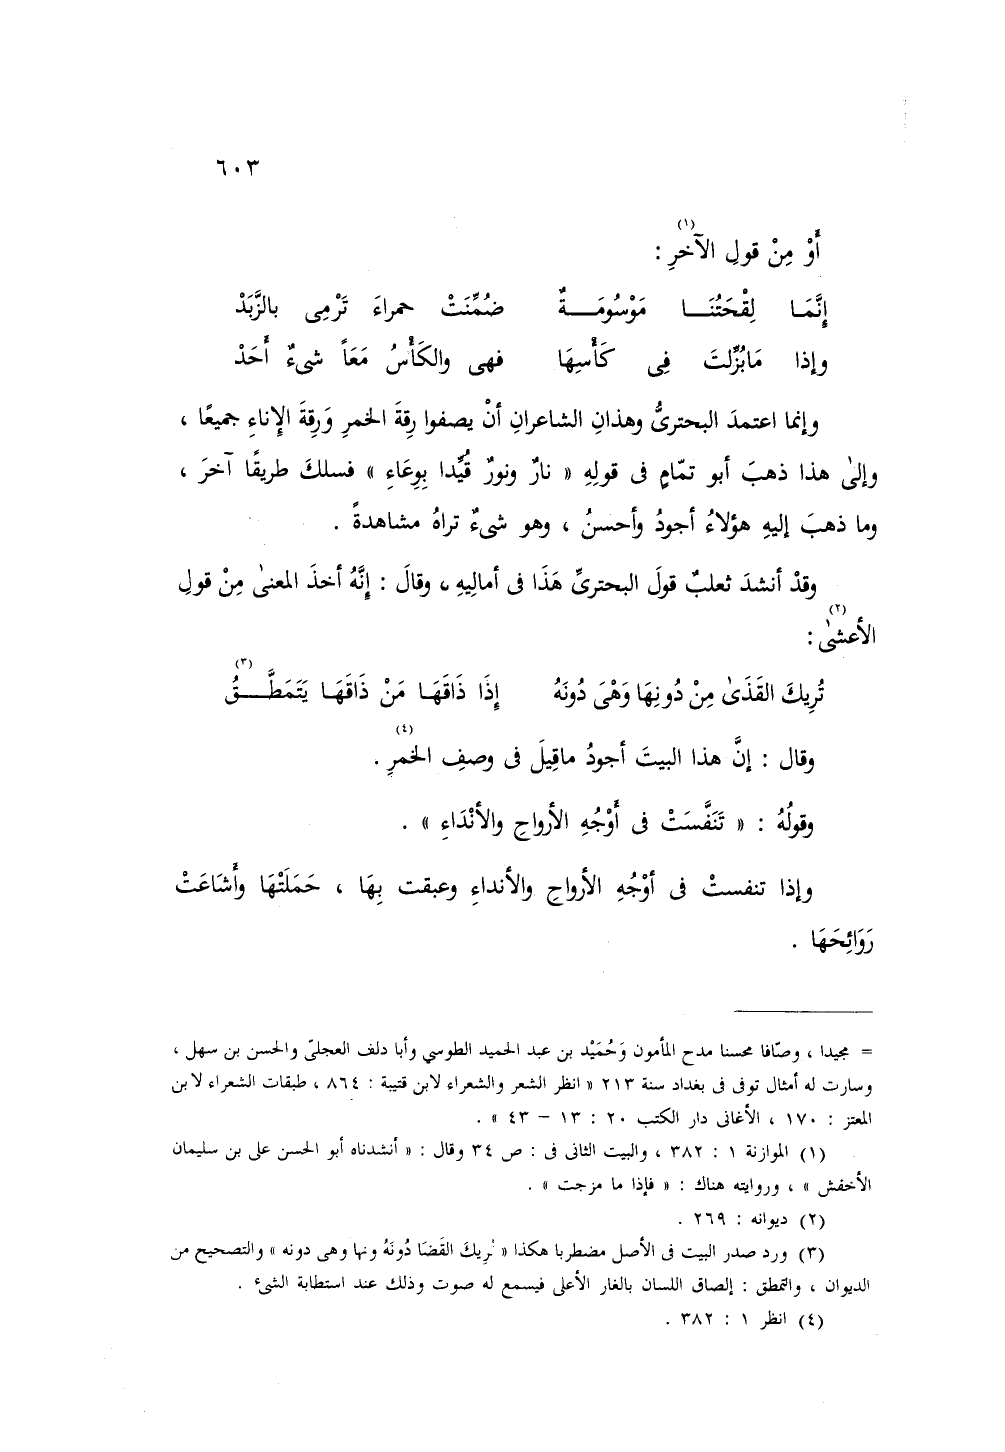 ٦٠٣
أَوْ مِنْ قولِ الآخرِ (١) :
إِنَّمَـا لِقْحَتُنَـــا مَوْسُومَـــةٌ ضُمِّنَتْ حمراءَ تَرْمِى بالزَّبَدْ
وإذا مَابُزِّلتَ فِى كَأْسِهَا فهى والكَأْسُ مَعَاً شىءٌ أَحَدْ
وإنما اعتمدَ البحترىُّ وهذانِ الشاعرانِ أنْ يصفوا رِقةَ الخمرِ وَرِقةَ الإِناءِ جميعًا ،
وإلىٰ هذا ذهبَ أبو تمّامٍ فى قولِهِ « نارٌ ونورٌ قُيِّدا بِوِعَاءِ » فسلكَ طريقًا آخرَ ،
وما ذهبَ إليهِ هؤلاءُ أجودُ وأحسنُ ، وهو شىءٌ تراهُ مشاهدةً .
وقدْ أنشدَ ثعلبٌ قولَ البحترىِّ هَذَا فى أمالِيهِ ، وقالَ : إِنَّهُ أخذَ المعنىٰ مِنْ قولِ
الأعشىٰ (٢) :
تُرِيكَ القَذَىٰ مِنْ دُونِهَا وَهْىَ دُونَهُ إِذَا ذَاقَهَـا مَنْ ذَاقَهَـا يَتَمَطَّـــقُ (٣)
وقال : إنَّ هذا البيتَ أجودُ ماقِيلَ فى وصفِ الخمرِ (٤) .
وقولُهُ : « تَنَفَّسَتْ فى أَوْجُهِ الأرواحِ والأنْدَاءِ » .
وإذا تنفستْ فى أوْجُهِ الأرواحِ والأنداءِ وعبقت بِهَا ، حَمَلَتْهَا وأَشَاعَتْ
رَوَائِحَهَا .
= مجيدا ، وصّافا محسنا مدح المأمون وَحُمَيْد بن عبد الحميد الطوسي وأبا دلف العجلىّ والحسن بن سهل ،
وسارت له أمثال توفى فى بغداد سنة ٢١٣ « انظر الشعر والشعراء لابن قتيبة : ٨٦٤ ، طبقات الشعراء لابن
المعتز : ١٧٠ ، الأغانى دار الكتب ٢٠ : ١٣ – ٤٣ » .
(١) الموازنة ١ : ٣٨٢ ، والبيت الثانى فى : ص ٣٤ وقال : « أنشدناه أبو الحسن على بن سليمان
الأخفش » ، وروايته هناك : « فإذا ما مزجت » .
(٢) ديوانه : ٢٦٩ .
(٣) ورد صدر البيت فى الأصل مضطربا هكذا « تُرِيكَ القَضَا دُونَهُ ونها وهى دونه » والتصحيح من
الديوان ، والتمطق : إلصاق اللسان بالغار الأعلى فيسمع له صوت وذلك عند استطابة الشىء .
(٤) انظر ١ : ٣٨٢ .